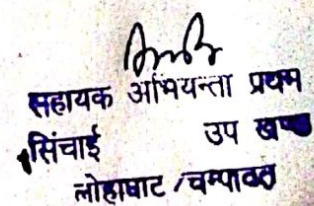 सहायक अभियन्ता प्रथम
सिंचाई उप खण्ड
लोहाघाट /चम्पावत